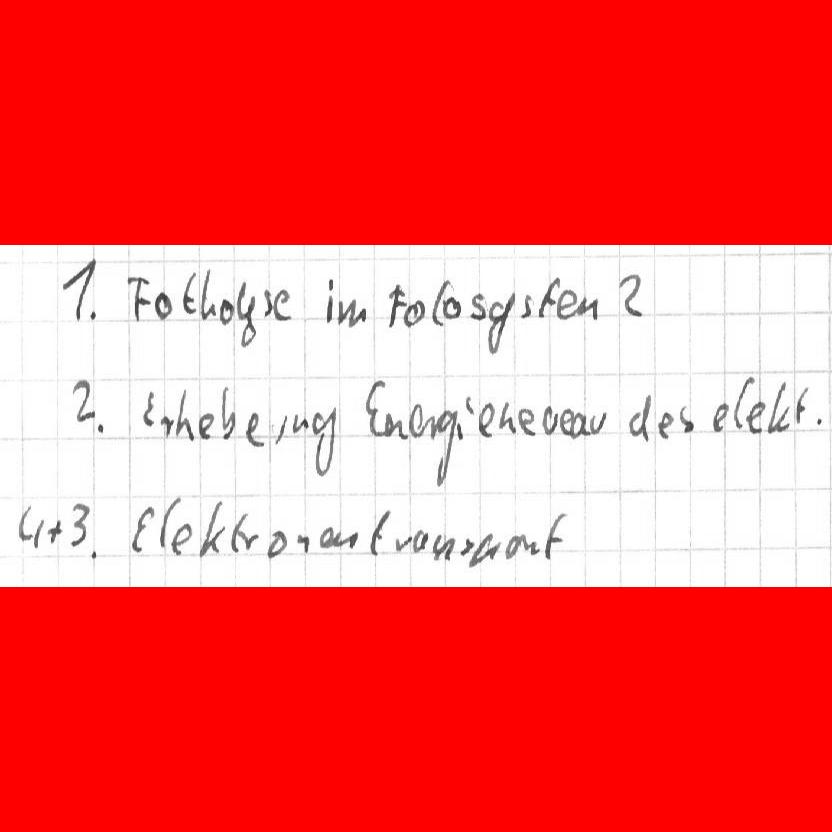 1. Fotholyse im Fotosysten 2
2. Erhebeung Energieneveau des elekt.
4+3. Elektronentransport